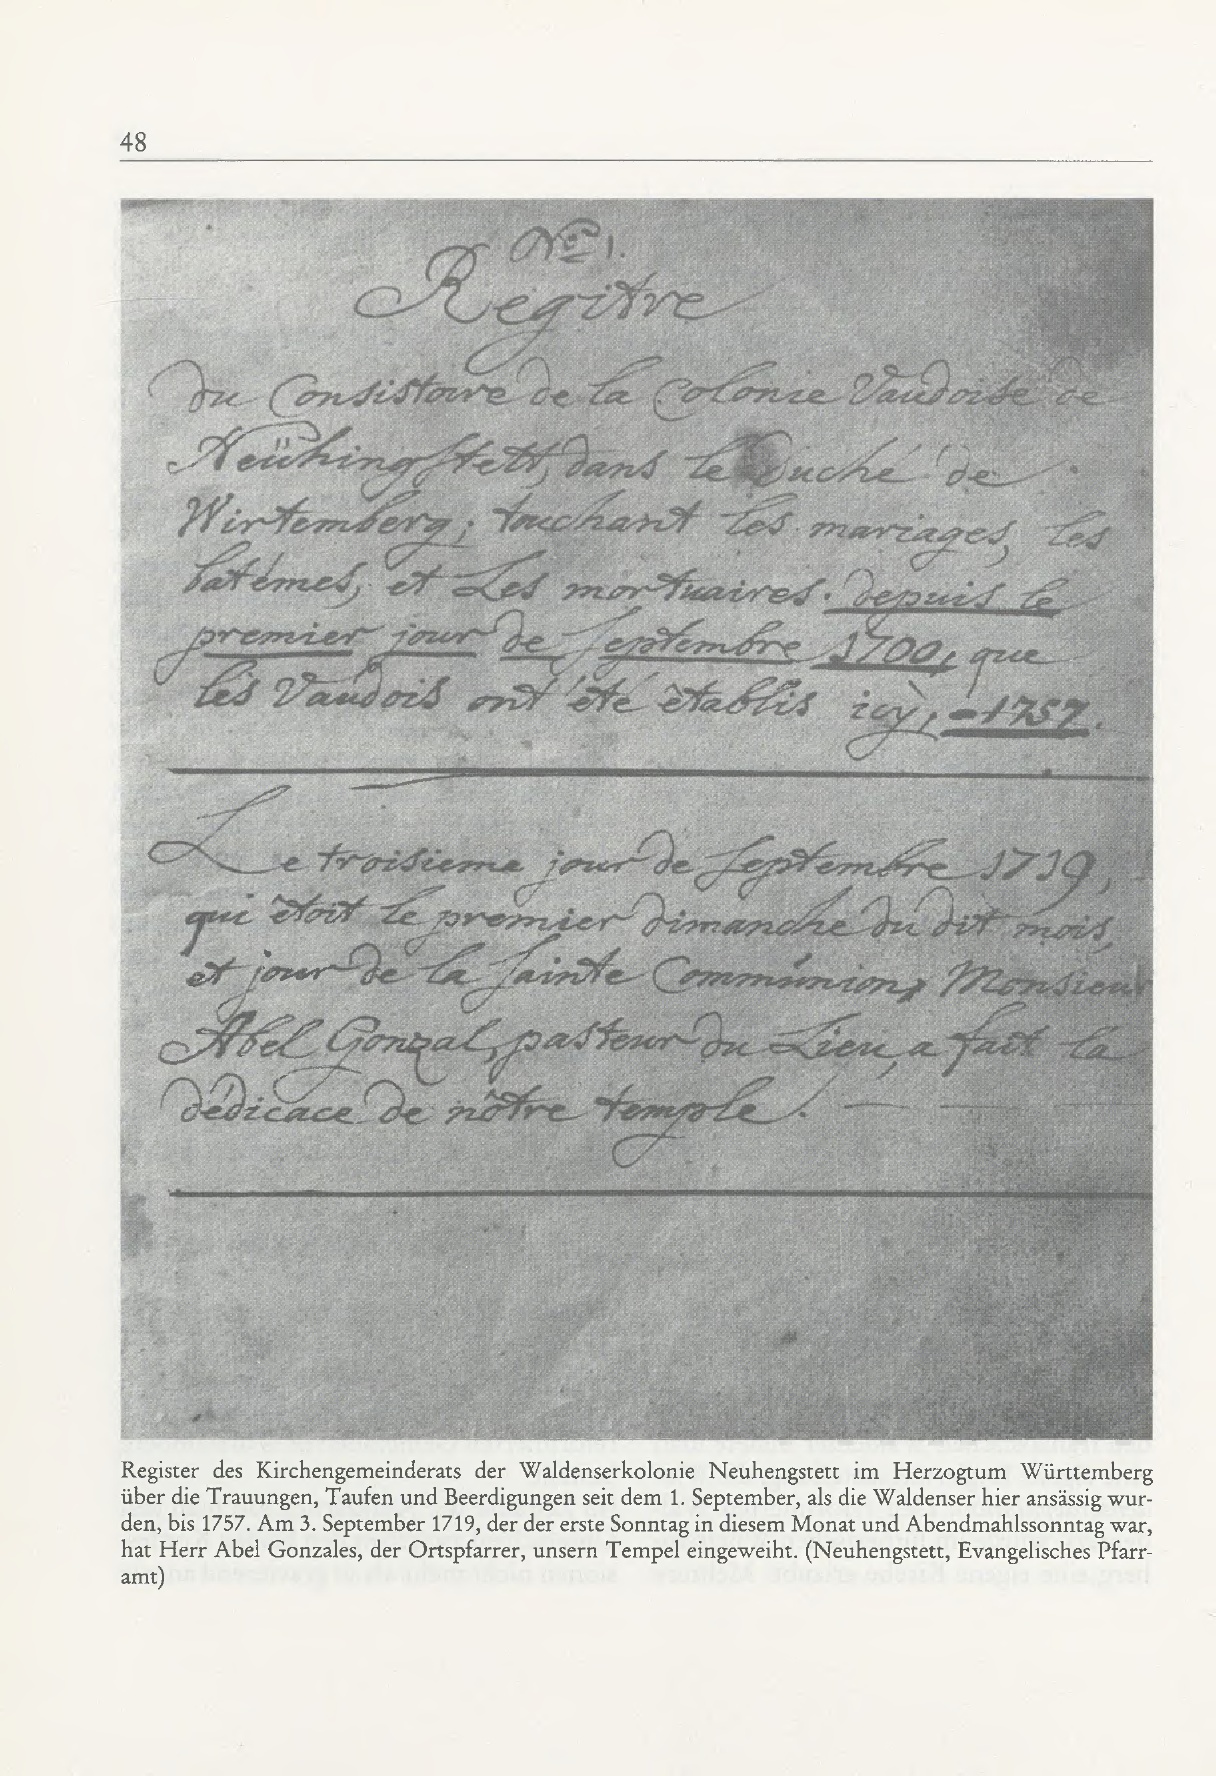 48
No 1.
Regître
Du Consistoire de la Colonie Vaudoise de
Neühingstett, dans le Duché de
Wirtemberg; touchant les mariages, les
batémes, et Les mortuaires. depuis le
premier jour de Septembre 1700, que
les Vaudois ont été ètablis icy, -1757.
Le troisieme jour de Septembre 1719,
qui ètoit le premier dimanche du dit mois,
et jour de la Sainte Communion, Monsieur
Abel Gonzal, pasteur du Lieu, a fait la
dédicace de nôtre temple.
Register des Kirchengemeinderats der Waldenserkolonie Neuhengstett im Herzogtum Württemberg
über die Trauungen, Taufen und Beerdigungen seit dem 1. September, als die Waldenser hier ansässig wur-
den, bis 1757. Am 3. September 1719, der der erste Sonntag in diesem Monat und Abendmahlssonntag war,
hat Herr Abel Gonzales, der Ortspfarrer, unsern Tempel eingeweiht. (Neuhengstett, Evangelisches Pfarr-
amt)